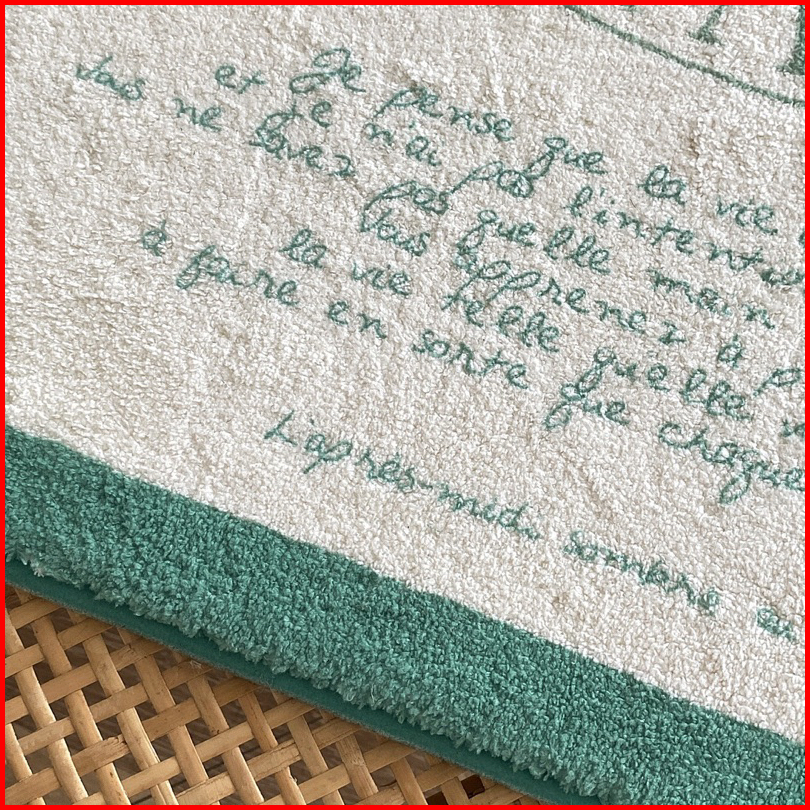 Je pense que la vie
et je n'ai pas l'intention
Vous ne savez pas quelle main
Vous apprenez à p
la vie telle quelle
à faire en sorte que chaque
L'après-midi sombre en